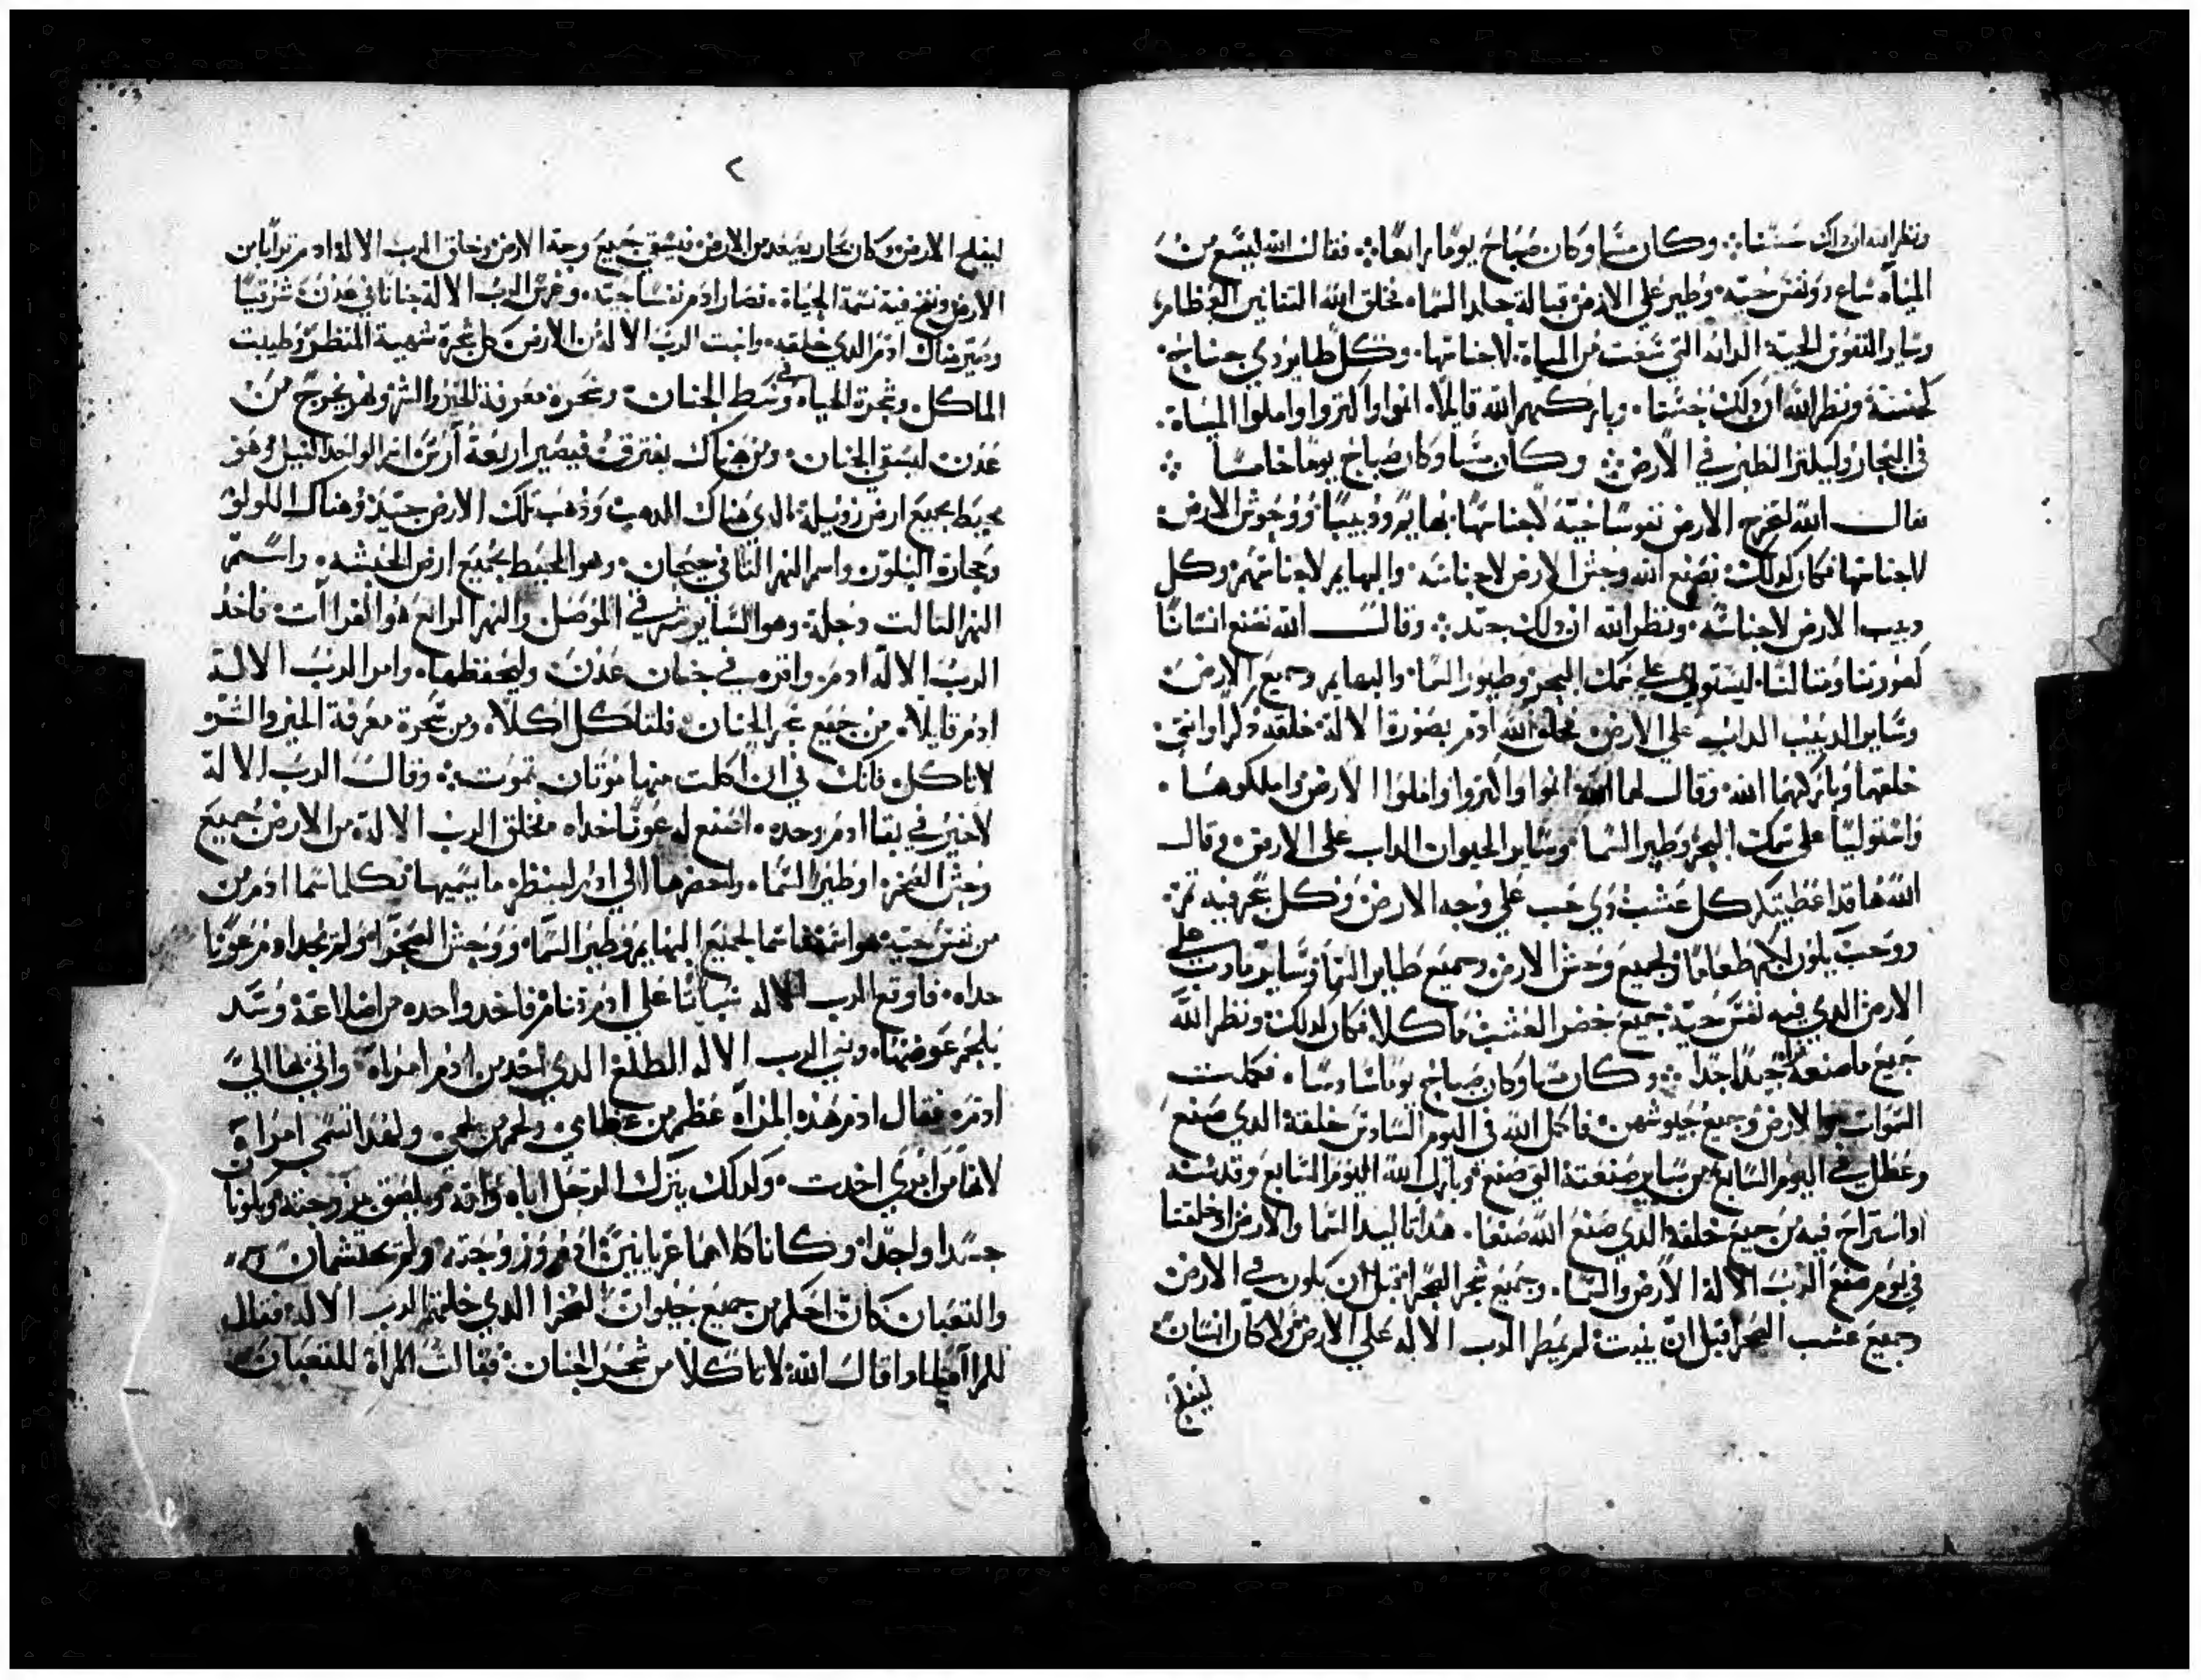 ونظر الله ان ذلك حسنا ܀ وكان مسا وكان صباح يوما رابعا ܀ فقال الله ليسع من
المياه ساع ذو نفس حيه وطير علي الارض قبالة جلد السما فخلق الله التنانين العظام
وساير النفوس الحية الدابه التي سعت من المياة لاجناسها وكل طاير ذي جناح
كجنسة ونظر الله ان ذلك حسنا وباركهم الله قايلا انموا واكتروا واملوا المياة
في البحار وليكتر الطير في الارض ܀ وكان مسا وكان صباح يوما خامسا ܀
فقال الله لتخرج الارض نفوسا حية لاجناسها بهايم ودبيبا ووحوش الارض
لاجناسها فكان كذلك فصنع الله وحش الارض لاجناسه والبهايم لاجناسهم وكل
دبيب الارض لاجناسه ونظر الله ان ذلك جيد ܀ وقال الله نصنع انسانا
كصورتنا ومتالنا ليستولي علي سمك البحر وطيور السما والبهايم وجميع الارض
وساير الدبيب الداب علي الارض فخلق الله ادم بصورة الالة خلقه ذكرا وانتي
خلقهما وباركهما الله وقال لهما الله انموا واكتروا واملوا الارض واملكوها
واستوليا علي سمك البحر وطير السما وساير الحيوان الداب علي الارض وقال
الله ها قد اعطيتكم كل عشب ذي حب علي وجه الارض وكل شجر فيه تمر
ذو حب يكون لكم طعاما ولجميع وحش الارض وجميع طاير السما وساير ما دب علي
الارض الدي فيه نفس حية جميع خضر العشب ماكلا فكان كذلك ونظر الله
جميع ما صنعه فراه جيدا جدا ܀ وكان مسا وكان صباح يوما سادسا فكملت
السموات والارض وجميع جيوشهن فاكمل الله في اليوم السادس خلقة الدي صنع
وعطل في اليوم السابع من ساير صنعتة التي صنع وبارك الله اليوم السابع وقدسه
اد استراح فيه من جميع خلقه الدي صنع الله صنعا هدا تاليد السما والارض اد خلقتا
في يوم صنع الرب الالة الارض والسما وجميع شجر الصحرا قبل ان يكون في الارض
وجميع عشب الصحرا قبل ان ينبت لم يمطر الرب الاله علي الارض ولا كان انسان
ليفلح
٢
ليفلح الارض وكان بخار يصعد من الارض فيسقي جميع وجه الارض وخلق الرب الالة ادم ترابا من
الارض ونفخ فية نسمة الحياة فصار ادم نفسا حيه وغرس الرب الالة جنانا في عدن شرقيا
وصير هناك ادم الدي خلقه وانبت الرب الاله من الارض كل شجرة شهية المنظر وطيبت
الماكل وشجرة الحياه في وسط الجنان وشجرة معرفة الخير والشر ونهر يخرج من
عدن ليسقي الجنان ومن هناك يفترق فيصير اربعة ارس اسم الواحد النيل وهو
محيط بجميع ارض زويلة الدي هناك الدهب ودهب تلك الارض جيد وهناك اللولو
وحجارة البلور واسم النهر التاني جيحان وهو المحيط بجميع ارض الحبشه واسم
النهر التالت دجلة وهو الساير شرقي الموصل والنهر الرابع هو الفرات فاخد
الرب الالة ادم واقره في جنان عدن وليحفظها وامر الرب الالة
ادم قايلا من جميع شجر الجنان فلتاكل اكلا ومن شجرة معرفة الخير والشر
لا تاكل فانك في ان اكلت منها موتان تموت ܀ وقال الرب الالة
لا خير في بقا ادم وحده اصنع له عونا حداه فخلق الرب الالة من الارض جميع
وحش الصحرا وطير السما واحضرها الي ادم لينظر ما يسميها فكلما سما ادم من
من نفس حية هو اسمها فاسما لجميع البهايم وطير السما ووحش الصحرا ولم يجد ادم عونا
حداه فاوقع الرب الاله سباتا علي ادم فنام فاخد واحده من اضلاعة وسد
بلحم عوضها وبني الرب الاله الضلع الدي اخد من ادم امراة واتي بها الي
ادم فقال ادم هذه المراه عظم من عظامي ولحم من لحمي ولهدا تسمي امراة
لانها من امري اخدت ولدلك يترك الرجل اباه وامه ويلصق بزوجته ويكونا
جسدا واحدا وكانا كلاهما عريانين ادم وزوجته ولم يحتشمان
والتعبان كان احكم من جميع حيوان الصحرا الدي خلقهم الرب الاله فقال
للمراة لمادا قال الله لا تاكلا من شجر الجنان فقالت المراة للتعبان